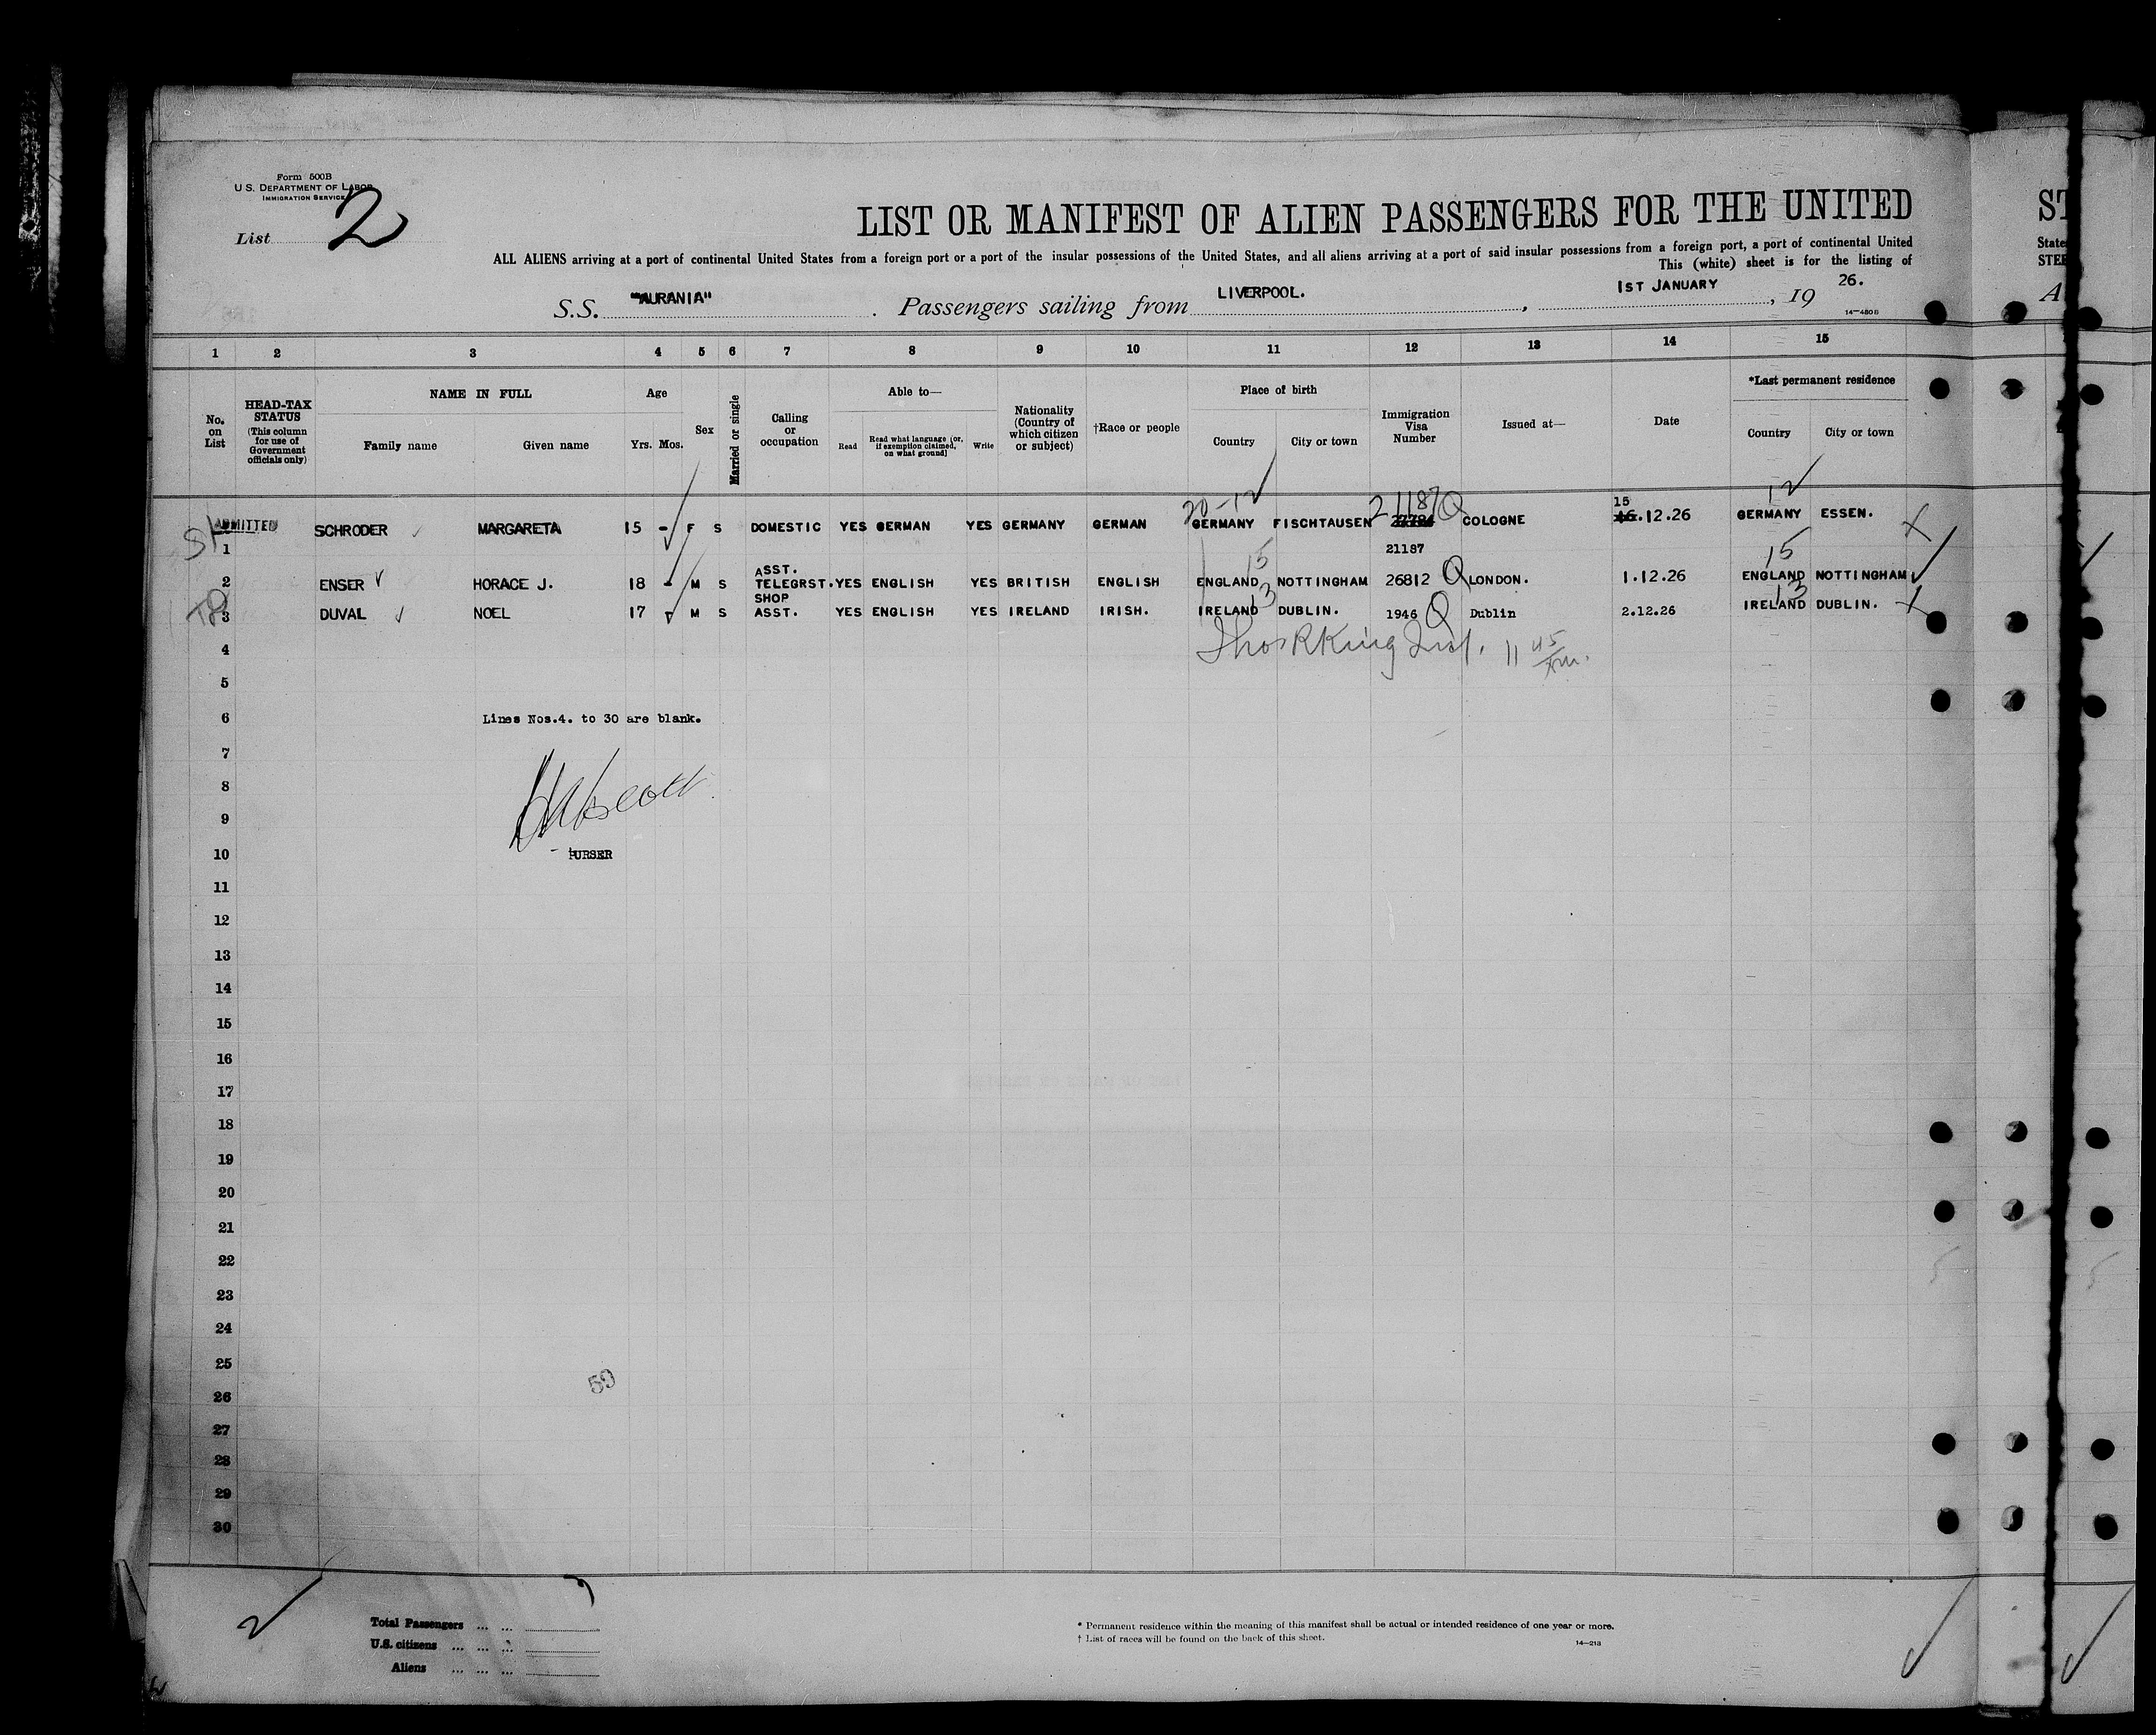 Form 500B
U.S. DEPARTMENT OF LABOR
IMMIGRATION SERVICE
List 2
LIST OR MANIFEST OF ALIEN PASSENGERS FOR THE UNITED
ST
ALL ALIENS arriving at a port of continental United States from a foreign port or a port of the insular possessions of the United States, and all aliens arriving at a port of said insular possessions from a foreign port, a port of continental United
State
This (white) sheet is for the listing of
STEE
S.S. "AURANIA". Passengers sailing from LIVERPOOL., 1ST JANUARY, 19 26.
A
14—480B
1 2 3 4 5 6 7 8 9 10 11 12 13 14 15
No. on List
HEAD-TAX STATUS (This column for use of Government officials only)
NAME IN FULL
Family name Given name
Age
Yrs. Mos.
Sex
Married or single
Calling or occupation
Able to—
Read
Read what language [or, if exemption claimed, on what ground]
Write
Nationality (Country of which citizen or subject)
†Race or people
Place of birth
Country City or town
Immigration Visa Number
Issued at—
Date
*Last permanent residence
Country City or town
20-12 21187 Q 15 12
ADMITTED SCHRODER MARGARETA 15 - F S DOMESTIC YES GERMAN YES GERMANY GERMAN GERMANY FISCHTAUSEN COLOGNE 16.12.26 GERMANY ESSEN. X
SI 1 21187
15 15
2 ENSER HORACE J. 18 - M S ASST. TELEGRST. YES ENGLISH YES BRITISH ENGLISH ENGLAND NOTTINGHAM 26812 Q LONDON. 1.12.26 ENGLAND NOTTINGHAM
13 13
3 DUVAL NOEL 17 - M S SHOP ASST. YES ENGLISH YES IRELAND IRISH. IRELAND DUBLIN. 1946 Q Dublin 2.12.26 IRELAND DUBLIN. X
4 Thos R King Insp. 11 45 am.
5
6 Lines Nos.4. to 30 are blank.
7
8
9
10 PURSER
11
12
13
14
15
16
17
18
19
20
21
22
23
24
25
59
26
27
28
29
30
Total Passengers ... ...
U.S. citizens ... ... ...
Aliens ... ... ...
* Permanent residence within the meaning of this manifest shall be actual or intended residence of one year or more.
† List of races will be found on the back of this sheet.
14—213